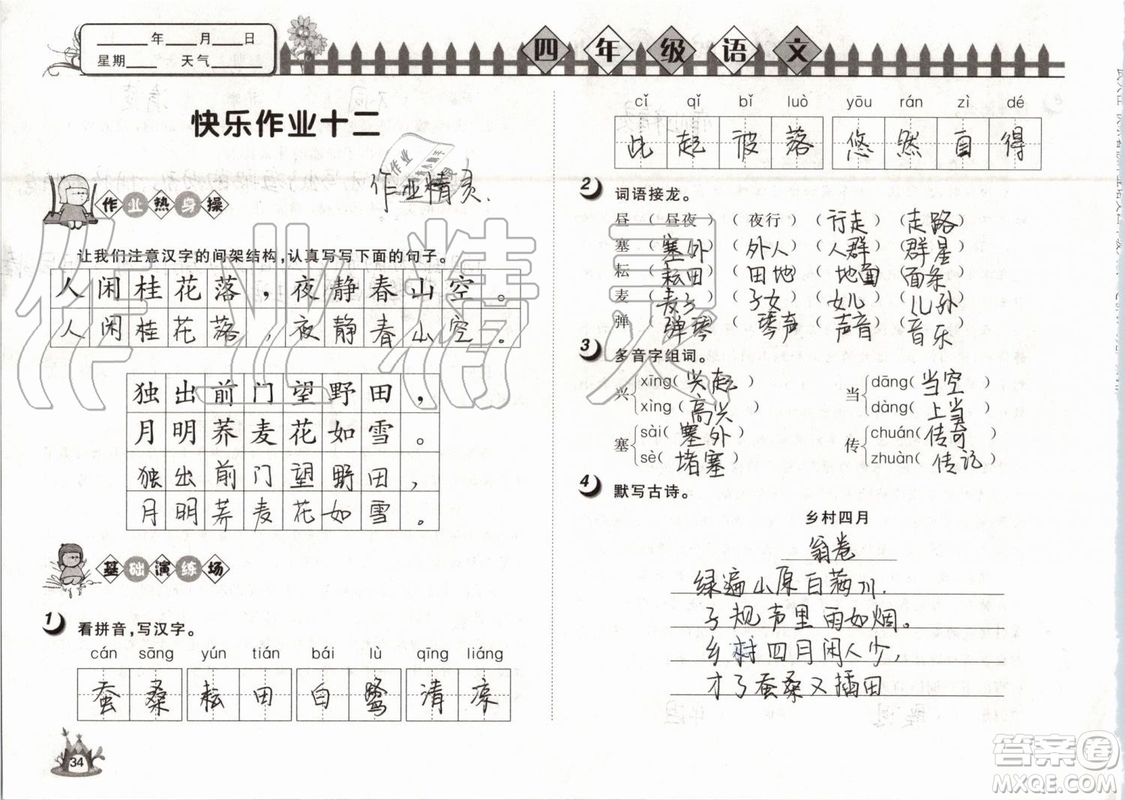 ____年____月____日
星期____ 天气________
四年级语文
快乐作业十二
作业精灵.
作业热身操
让我们注意汉字的间架结构，认真写写下面的句子。
人闲桂花落，夜静春山空。
人闲桂花落，夜静春山空。
独出前门望野田，
月明荞麦花如雪。
独出前门望野田，
月明荞麦花如雪。
基础演练场
1 看拼音，写汉字。
cán sāng yún tián bái lù qīng liáng
蚕桑 耘田 白鹭 清凉
34
cǐ qǐ bǐ luò yōu rán zì dé
此起彼落 悠然自得
2 词语接龙。
昼（昼夜）（夜行）（行走）（走路）
塞（塞外）（外人）（人群）（群星）
耘（耘田）（田地）（地面）（面条）
麦（麦子）（子女）（女儿）（儿孙）
弹（弹琴）（琴声）（声音）（音乐）
3 多音字组词。
兴 xīng（兴起） xìng（高兴） 当 dāng（当空） dàng（上当）
塞 sài（塞外） sè（堵塞） 传 chuán（传奇） zhuàn（传记）
4 默写古诗。
乡村四月
翁卷
绿遍山原白满川.
子规声里雨如烟。
乡村四月闲人少，
才了蚕桑又插田
作业精灵
答案卷
MXQE.COM